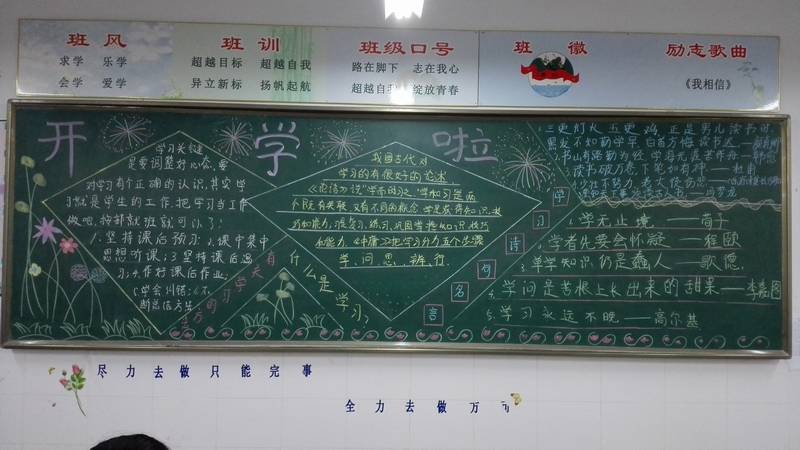 班 风
求学 乐学
会学 爱学
班 训
超越目标 超越自我
异立新标 扬帆起航
班级口号
路在脚下 志在我心
超越自我 绽放青春
班 徽
励志歌曲
《我相信》
开 学 啦
学习关键
是要调整好心态,要
对学习有个正确的认识,其实学
习就是学生的工作,把学习当工作
做吧,按部就班就可以了!
1.坚持课后预习;2.课中集中
思想听课;3.坚持课后温
习;4.作好课后作业;
5.学会纠错;6.不
断总结方法
学习关有
我国古代对
学习的有很好的论述,
《论语》说"学而时习之","学和习是两
个既有关联又有不同的概念
《中庸》把学习分为五个步骤
学、问、思、辨、行
什么是学习?
学习诗句名言
三更灯火五更鸡,正是男儿读书时,
黑发不知勤学早,白首方悔读书迟
2.书山有路勤为径,学海无涯苦作舟——韩愈
3.读书破万卷,下笔如有神——杜甫
1.学无止境——荀子
2.学者先要会怀疑——程颐
3.单学知识仍是蠢人——歌德.
4.学问是苦根上长出来的甜果——李嘉图
5.学习永远不晚——高尔基
尽力去做只能完事
全力去做万